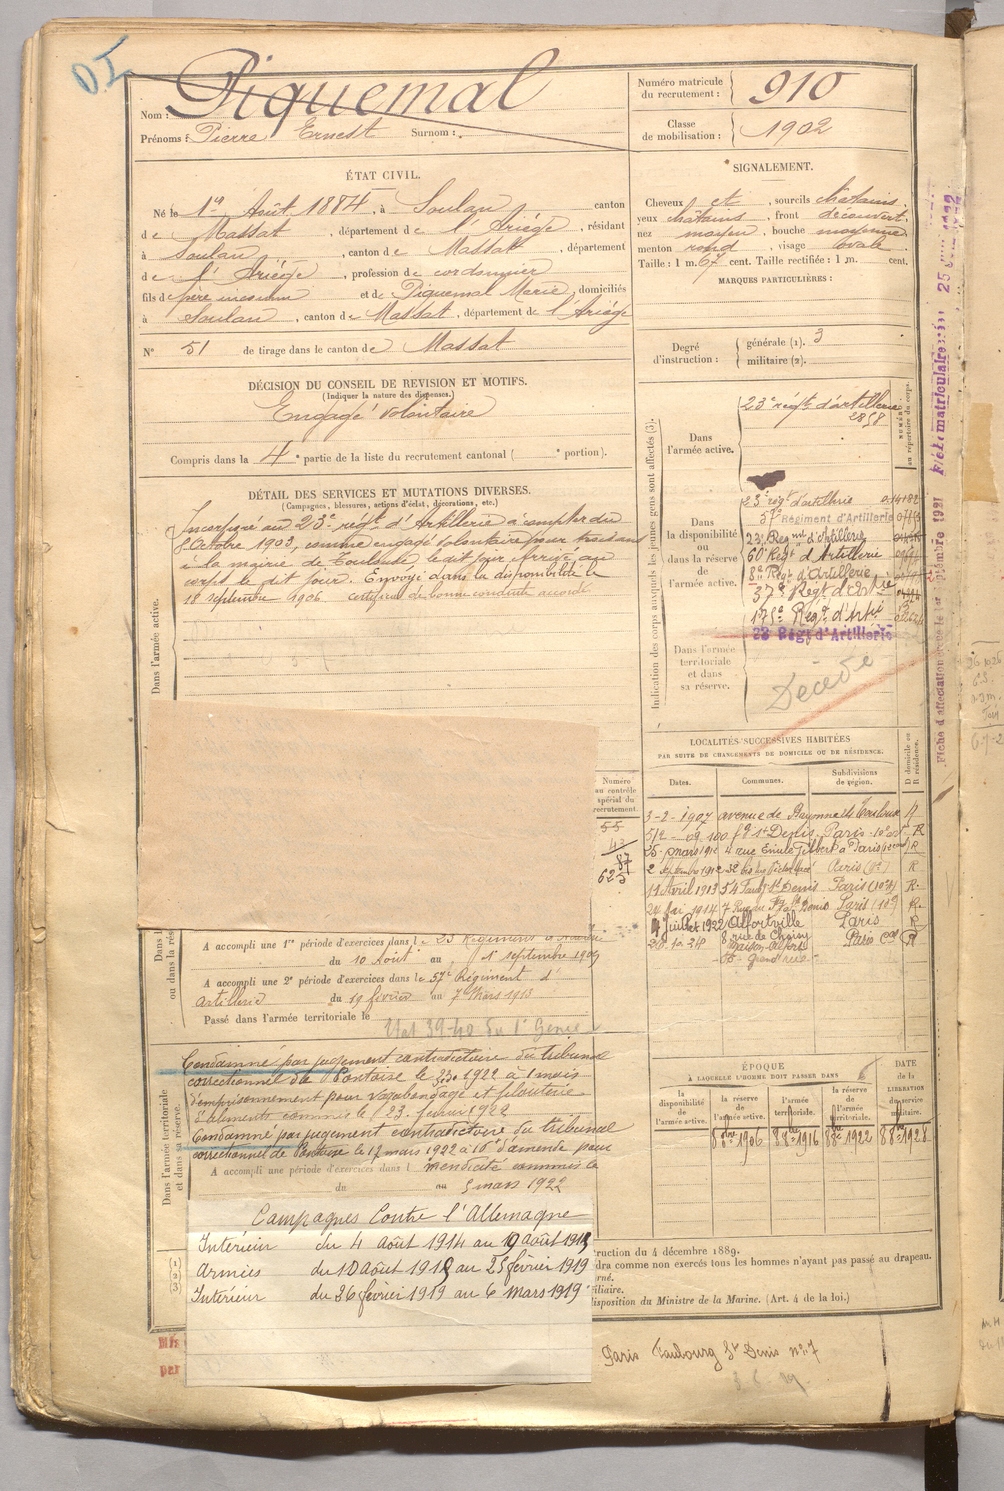 D.I
Nom : Piquemal
Prénoms : Pierre Ernest Surnom :
Numéro matricule du recrutement : 910
Classe de mobilisation : 1902
ÉTAT CIVIL.
Né le 1er Août 1884, à Soulan canton
de Massat, département de l'Ariège, résidant
à Soulan, canton de Massat, département
de l'Ariège, profession de cordonnier
fils de père inconnu et de Piquemal Marie, domiciliés
à Soulan, canton de Massat, département de l'Ariège
N° 51 de tirage dans le canton de Massat
SIGNALEMENT.
Cheveux et, sourcils châtains,
yeux châtains, front découvert,
nez moyen, bouche moyenne,
menton rond, visage ovale
Taille : 1 m. 67 cent. Taille rectifiée : 1 m. cent.
MARQUES PARTICULIÈRES :
Degré d'instruction : générale (1). 3
militaire (2).
DÉCISION DU CONSEIL DE REVISION ET MOTIFS.
(Indiquer la nature des dispenses.)
Engagé volontaire
Compris dans la 4e partie de la liste du recrutement cantonal ( e portion).
DÉTAIL DES SERVICES ET MUTATIONS DIVERSES.
(Campagnes, blessures, actions d'éclat, décorations, etc.)
Dans l'armée active.
Incorporé au 23e régt d'Artillerie à compter du
8 Octobre 1903, comme engagé volontaire pour trois ans
à la mairie de Toulouse le dit jour. Arrivé au
corps le dit jour. Envoyé dans la disponibilité le
18 septembre 1906. certificat de bonne conduite accordé
Indication des corps auxquels les jeunes gens sont affectés (3).
NUMÉRO au répertoire du corps.
Dans l'armée active.
23e régt d'artillerie
2858
Dans la disponibilité ou dans la réserve de l'armée active.
23e régt d'artillerie
57e Régiment d'Artillerie
23e Regnt d'Artillerie
60e Regt d'Artillerie
8e Regt d'Artillerie
37e Regt d'Artie
175e Regt d'Artie
23 Régt d'Artillerie
Dans l'armée territoriale et dans sa réserve.
Décédé
LOCALITÉS SUCCESSIVES HABITÉES
PAR SUITE DE CHANGEMENTS DE DOMICILE OU DE RÉSIDENCE.
Dates. Communes. Subdivisions de région. D domicile ou R résidence.
3-2-1907 avenue de Toulouse
100 fg St Denis Paris 10e R
25 mars 1912 4 rue Emile Gilbert à Paris R
Paris R
11 Avril 1913 54 Faubg St Denis Paris (10e) R.
24 Mai 1914 7 Rue du Fg St Denis Paris (10e) R.
4 Juillet 1922 Alfortville Paris R
8 rue de Choisy
Maison-Alfort Paris R
Grande rue
Numéro au contrôle spécial du recrutement.
55
43
87
625
A accompli une 1re période d'exercices dans le 23 Régiment d'Artillerie
du 10 Août au 1er septembre 1909
A accompli une 2e période d'exercices dans le 57e Régiment d'
artillerie du 19 février au 7 Mars 1913
Passé dans l'armée territoriale le
Etat 39-40 du 1er Génie
Dans l'armée territoriale et dans sa réserve.
Condamné par jugement contradictoire du tribunal
correctionnel de Pontoise le 1922 à 1 mois
d'emprisonnement pour vagabondage et filouterie
d'aliments commis le 23 février 1922
Condamné par jugement contradictoire du tribunal
correctionnel de Pontoise le 17 mars 1922 à 10f d'amende pour
A accompli une période d'exercices dans l mendicité commise le
du au 5 mars 1922
Campagnes Contre l'Allemagne
Intérieur du 4 Août 1914 au 19 août 1918
Armées du 10 Août 1918 au 25 février 1919
Intérieur du 26 février 1919 au 6 Mars 1919
ÉPOQUE
À LAQUELLE L'HOMME DOIT PASSER DANS
la disponibilité de l'armée active. la réserve de l'armée active. l'armée territoriale. la réserve de l'armée territoriale. DATE de la LIBÉRATION du service militaire.
8 8bre 1906 8 8bre 1916 8 8bre 1922 8 8bre 1928
(1)
(2)
(3)
truction du 4 décembre 1889.
dra comme non exercés tous les hommes n'ayant pas passé au drapeau.
rné.
iliaire.
lisposition du Ministre de la Marine. (Art. 4 de la loi.)
Paris Faubourg St Denis no 7